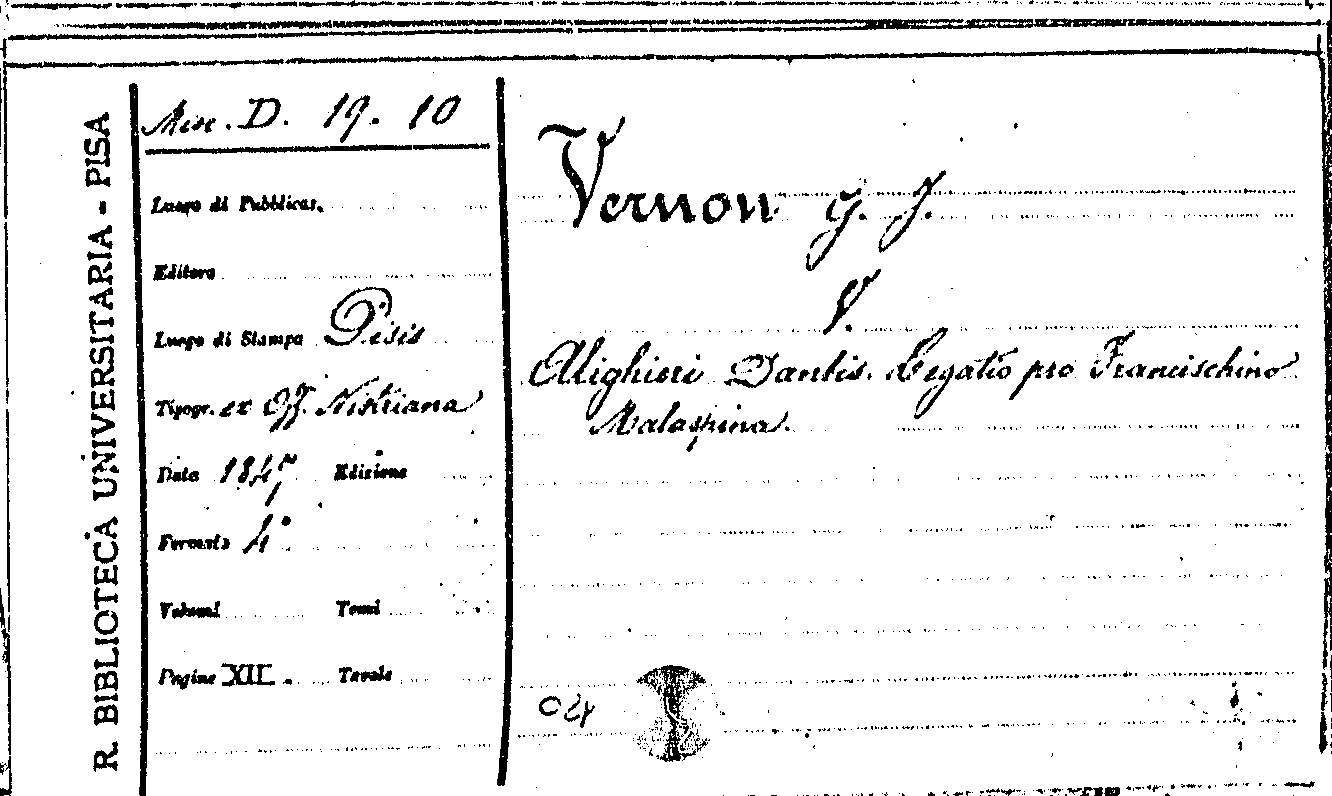 R. BIBLIOTECA UNIVERSITARIA - PISA
Misc. D. 19. 10
Luogo di Pubblicaz.
Editore
Luogo di Stampa Pisis
Tipogr. ex Off. Nistriana
Data 1847 Edizione
Formato 4°
Volumi Tomi
Pagine XII. Tavole
Vernon G. J.
V.
Alighieri Dantis. Legatio pro Francischino
Malaspina.